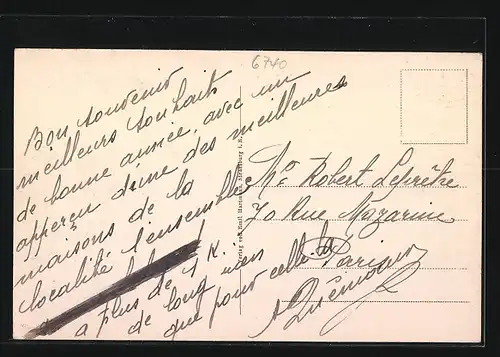 6740
Bon souvenir
meilleurs souhaits
de bonne année, avec un
apperçu d'une des meilleures
maisons de la
localité l'ensemble
a plus de 1 K.
de long rien
que pour cette
Mr. Robert Leprêtre
70 Rue Mazarine
Verlag von Strassburg i. E.